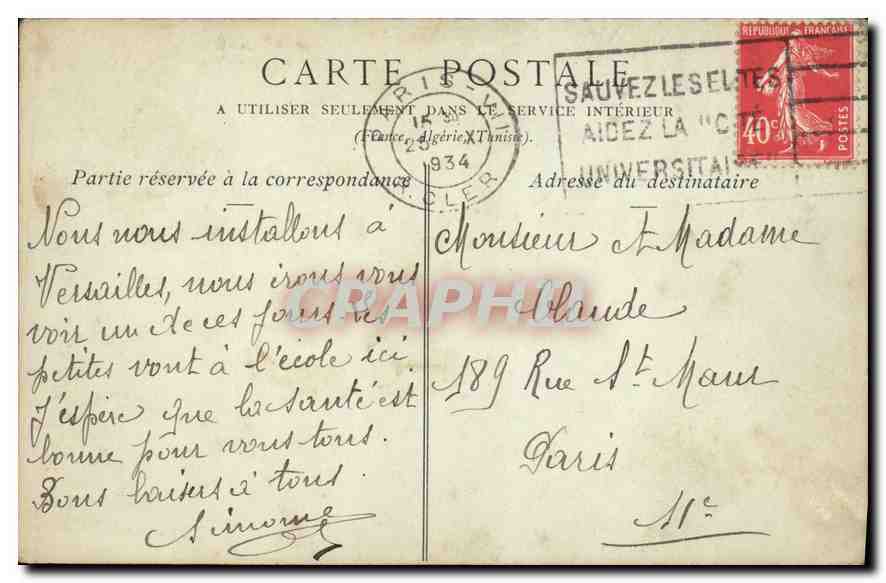 CARTE POSTALE
A UTILISER SEULEMENT DANS LE SERVICE INTÉRIEUR
(France, Algérie, Tunisie).
Partie réservée à la correspondance
Nous nous installons à
Versailles, nous irons vous
voir un de ces jours. Les
petites vont à l'école ici
J'espère que la santé est
bonne pour vous tous.
Bons baisers à tous.
Simone
Adresse du destinataire
Monsieur et Madame
Claude
189 Rue St Maur
Paris
11e
PARIS-VII
15 30
25 X
1934
R. CLER
SAUVEZ LES ELITES
AIDEZ LA "CITÉ
UNIVERSITAIRE"
REPUBLIQUE FRANÇAISE
40c
POSTES
CRAPHIL